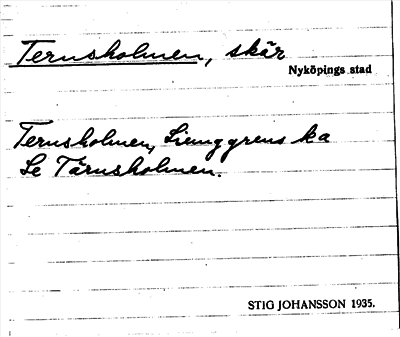 Ternsholmen, skär
Nyköpings stad
Ternsholmen, Liunggrens ka
Se Tärnsholmen.
STIG JOHANSSON 1935.